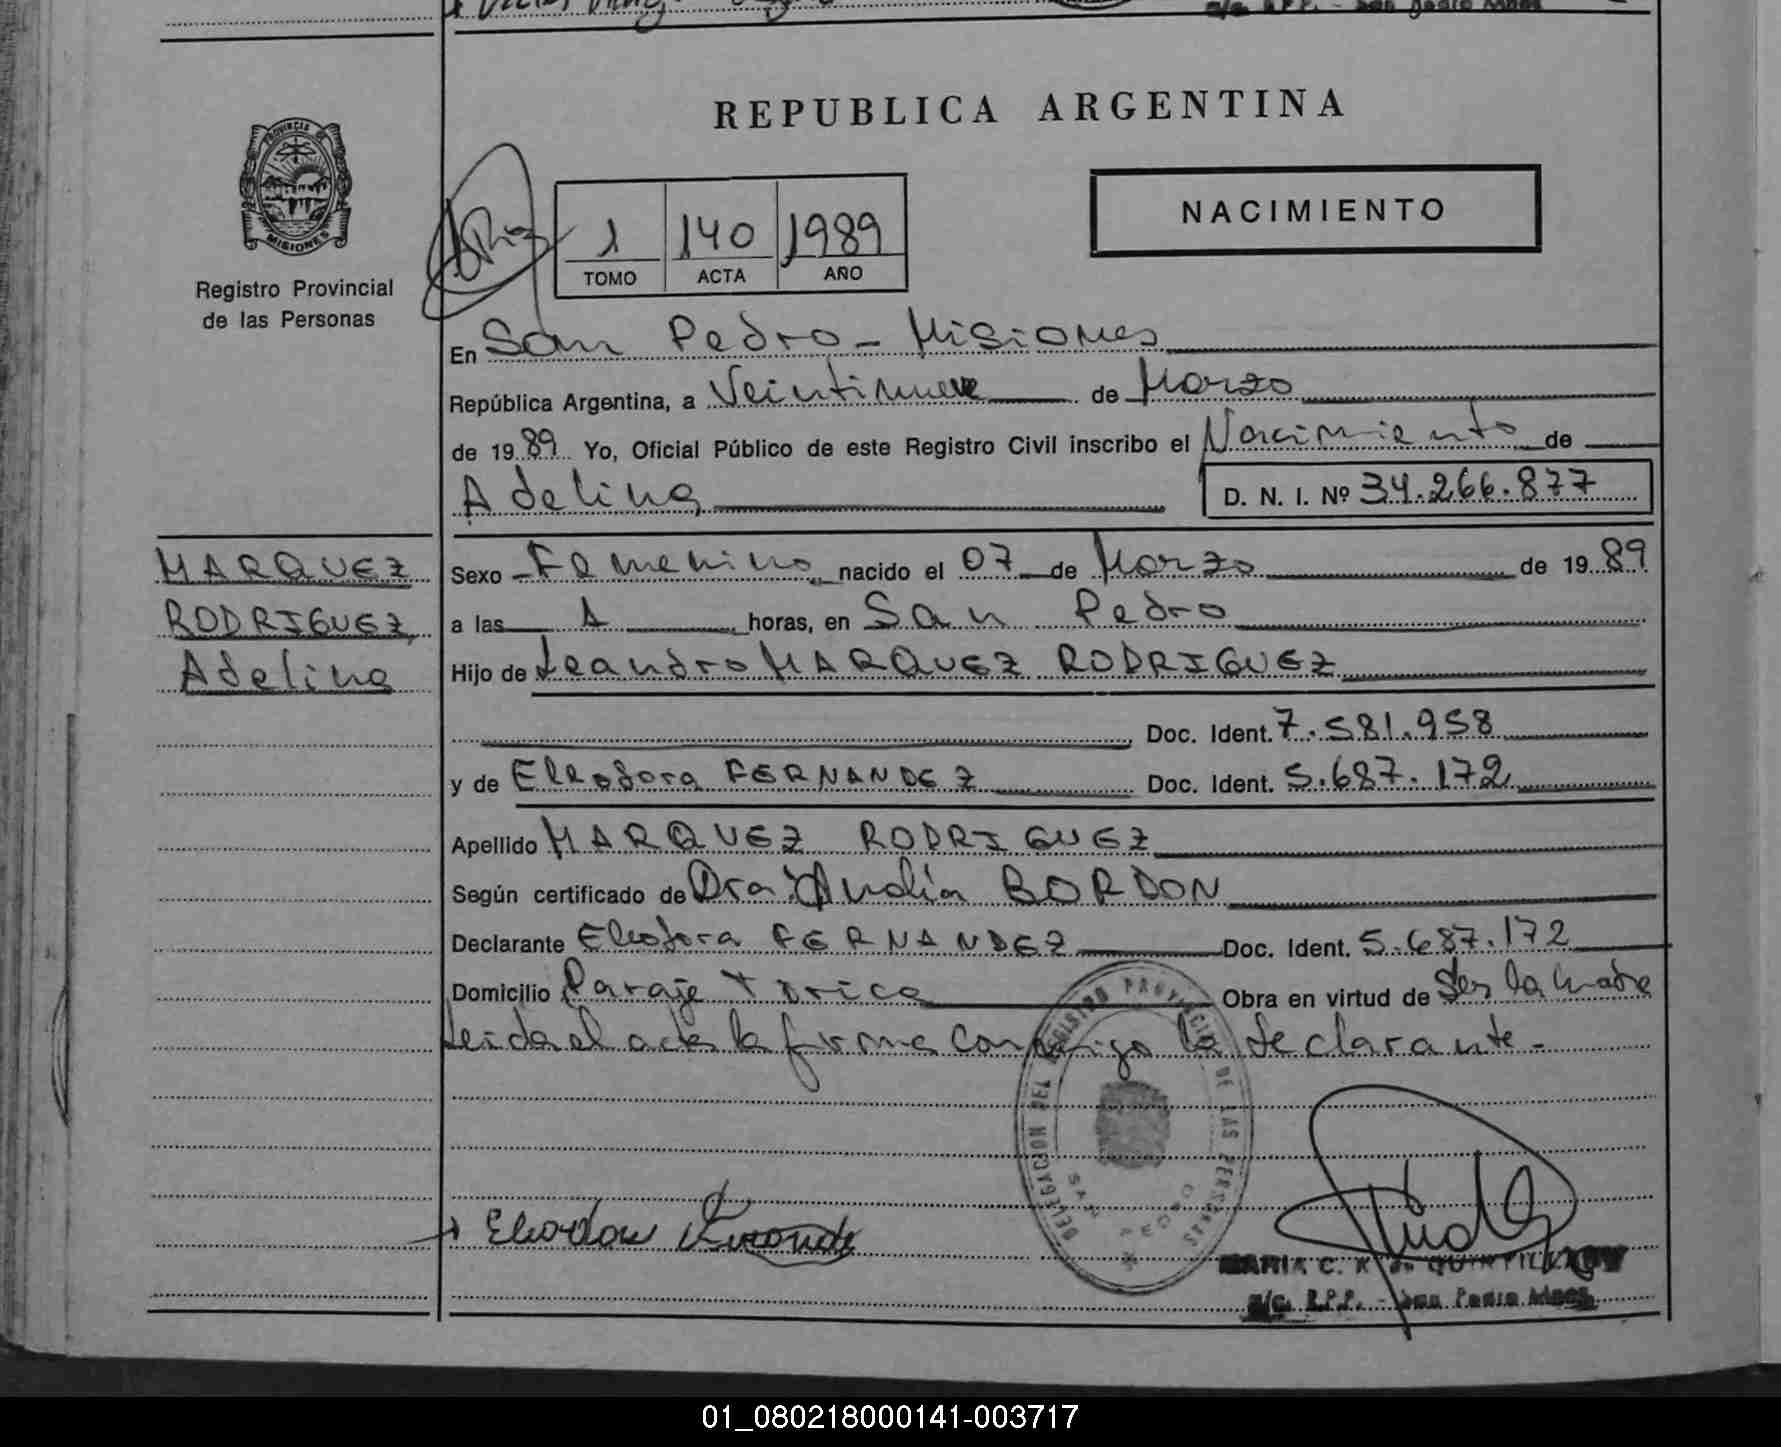 REPUBLICA ARGENTINA
PROVINCIA DE
MISIONES
Registro Provincial
de las Personas
1 140 1989
TOMO ACTA AÑO
NACIMIENTO
En San Pedro - Misiones
República Argentina, a Veintinueve de Marzo
de 1989 Yo, Oficial Público de este Registro Civil inscribo el Nacimiento de
Adelina D. N. I. Nº 34.266.877
MARQUEZ
RODRIGUEZ,
Adelina
Sexo Femenino nacido el 07 de Marzo de 1989
a las 1 horas, en San Pedro
Hijo de Leandro MARQUEZ RODRIGUEZ
Doc. Ident. 7.581.958
y de Eleodora FERNANDEZ Doc. Ident. 5.687.172
Apellido MARQUEZ RODRIGUEZ
Según certificado de Dra. Analía BORDON
Declarante Eleodora FERNANDEZ Doc. Ident. 5.687.172
Domicilio Paraje Torica Obra en virtud de Ser la madre
Leida el acta la firma conmigo la declarante.-
DELEGACION DEL REGISTRO PROVINCIAL DE LAS PERSONAS
SAN PEDRO
MARIA C. K. de
a/c. R.P.P. - San Pedro Mnes.
01_080218000141-003717